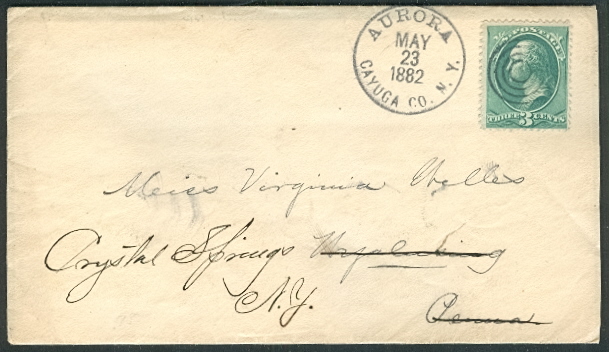 AURORA
MAY
23
1882
CAYUGA CO. N.Y.
U.S. POSTAGE
THREE 3 CENTS
Miss Virginia Welles
Crystal Springs Wyalusing
N.Y.
Penna